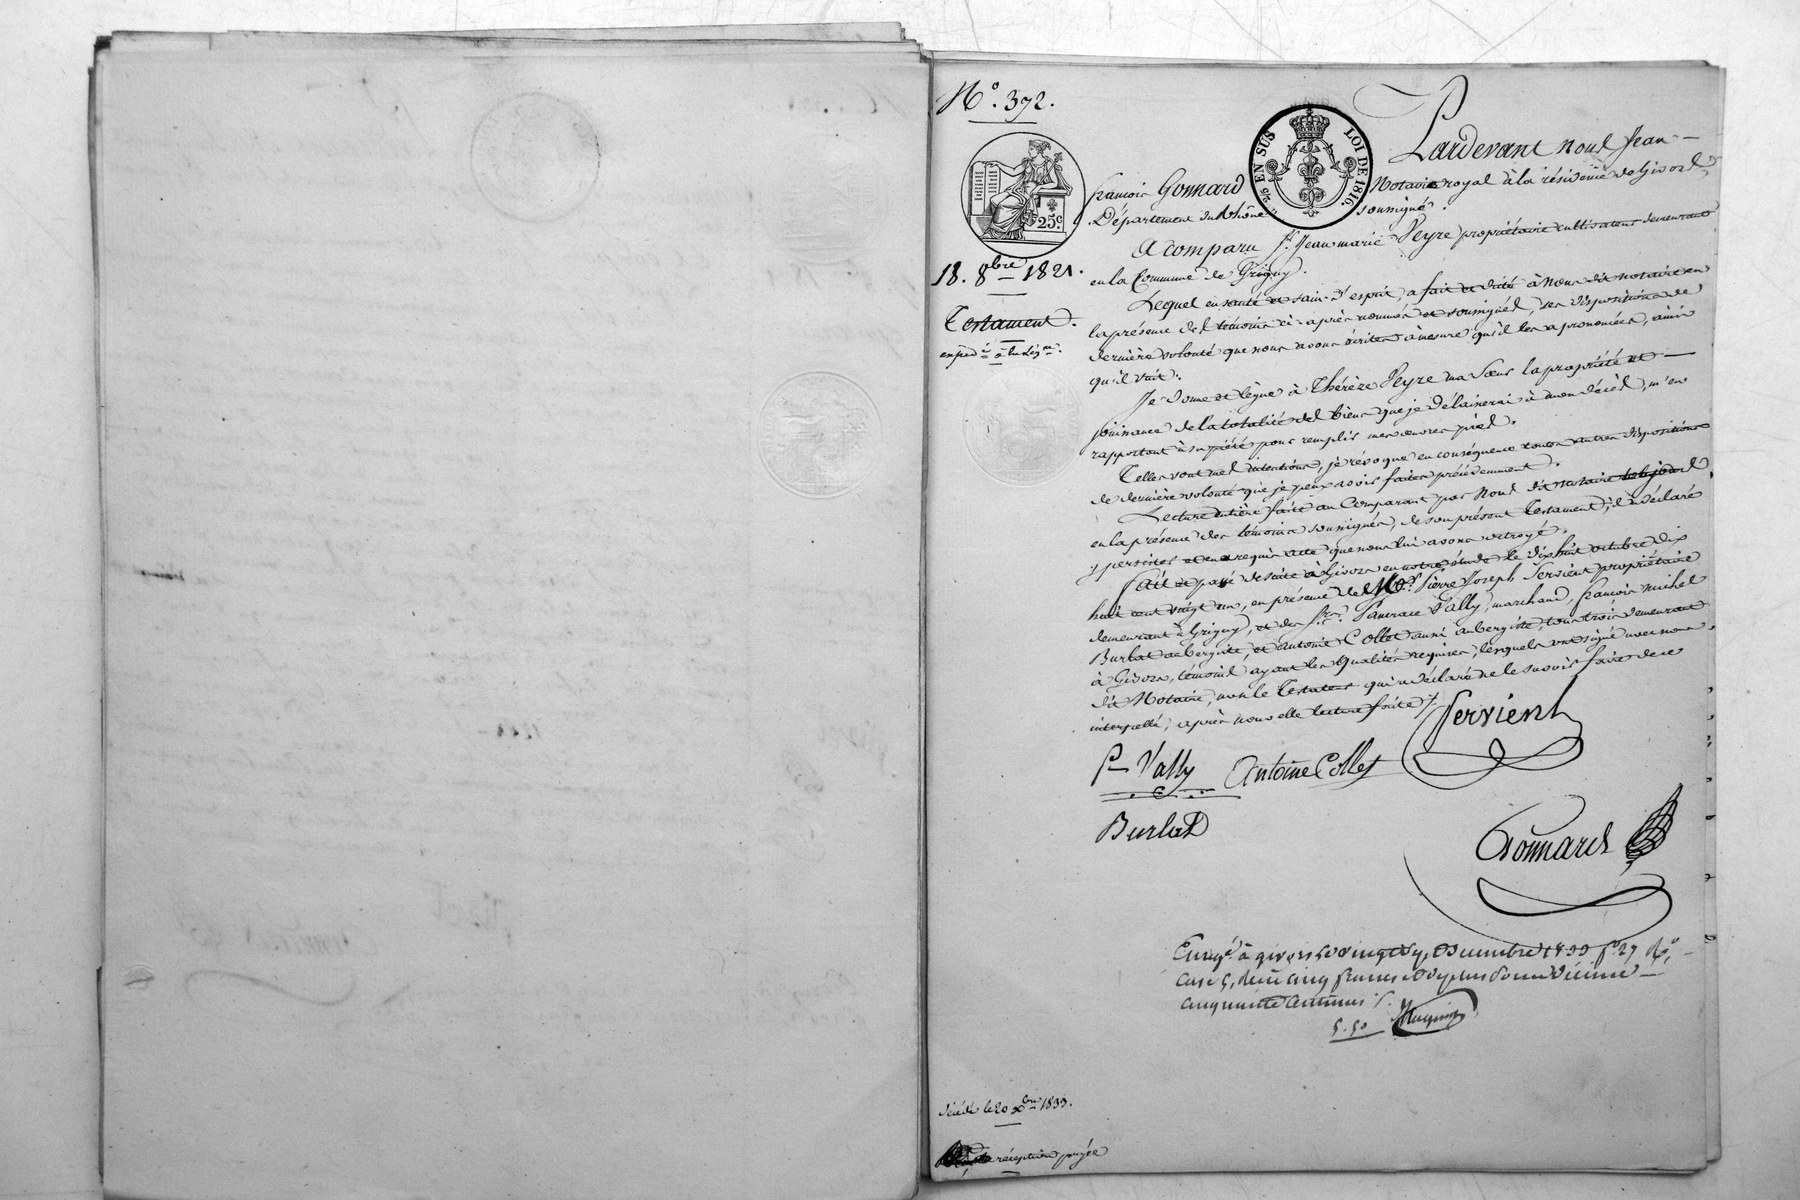 N.° 372.
2/5 EN SUS LOI DE 1816.
25c
18. 8bre 1821.
Testament.
Pardevant nous Jean
françois Gonnard Notaire royal à la résidence de Givors,
Département du Rhône soussigné.
A comparu Sr. Jean marie Peyre propriétaire cultivateur demeurant
en la Commune de Grigny.
Lequel en santé et sain d'esprit, a fait et dicté à Nous dit notaire en
la présence des témoins ci-après nommés et soussignés, ses dispositions de
dernière volonté que nous avons écrites à mesure qu'il les a prononcées, ainsi
qu'il suit:
Je donne et lègue à Thérèse Peyre ma Sœur la propriété et
jouissance de la totalité des biens que je délaisserai à mon décès, m'en
rapportant à sa piété pour remplir mes œuvres pies.
Telles sont mes intentions, je révoque en conséquence toutes autres dispositions
de dernière volonté que je peux avoir faites précédemment.
Lecture entière faite au Comparant par Nous dit notaire
en la présence des témoins soussignés, de son présent Testament, il a déclaré
y persister et en a requis acte que nous lui avons octroyé.
fait et passé de suite à Givors en notre étude le dix huit octobre dix
huit cent vingt un, en présence de Pierre Joseph Servient propriétaire
demeurant à Grigny, et des Srs. Pancrace Vally, marchand, françois michel
Burlat aubergiste, et antoine Collet aussi aubergiste, tous trois demeurant
à Givors, témoins ayant les qualités requises, lesquels ont signé avec nous
dit Notaire, non le Testateur qui a déclaré ne le savoir faire de ce
interpellé, après nouvelle lecture faite ./.
Servient
Pre Vally Antoine Collet
Burlat
Gonnard
Enregé à givors le vingt Décembre 1833 fo 27 Ro,
case 5, reçu cinq francs et pour décime
cinquante centimes ./.
5.50
Décédé le 20 Xbre 1833.
réception payée